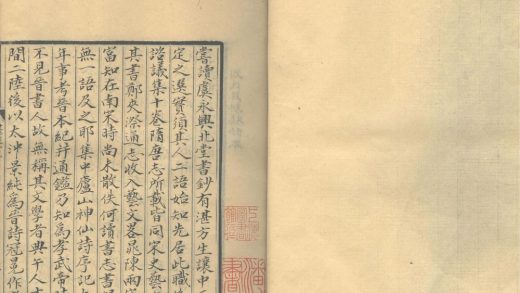 嘗讀虞永興北堂書鈔有湛方生讓中
定之湊實須其人二語始知先居此職
諮議集十卷隋唐志所載皆同宋史藝
其書鄭夾漈通志收入藝文畧晁陳兩
富知在南宋時尚未散佚何讀書志書
無一語及之耶集中廬山神仙詩序記
年事考晉本紀并通鑑乃知為孝武帝
不見晉書人故無稱其文學者典午人
間二陸後以太沖景純為晉詩冠冕作